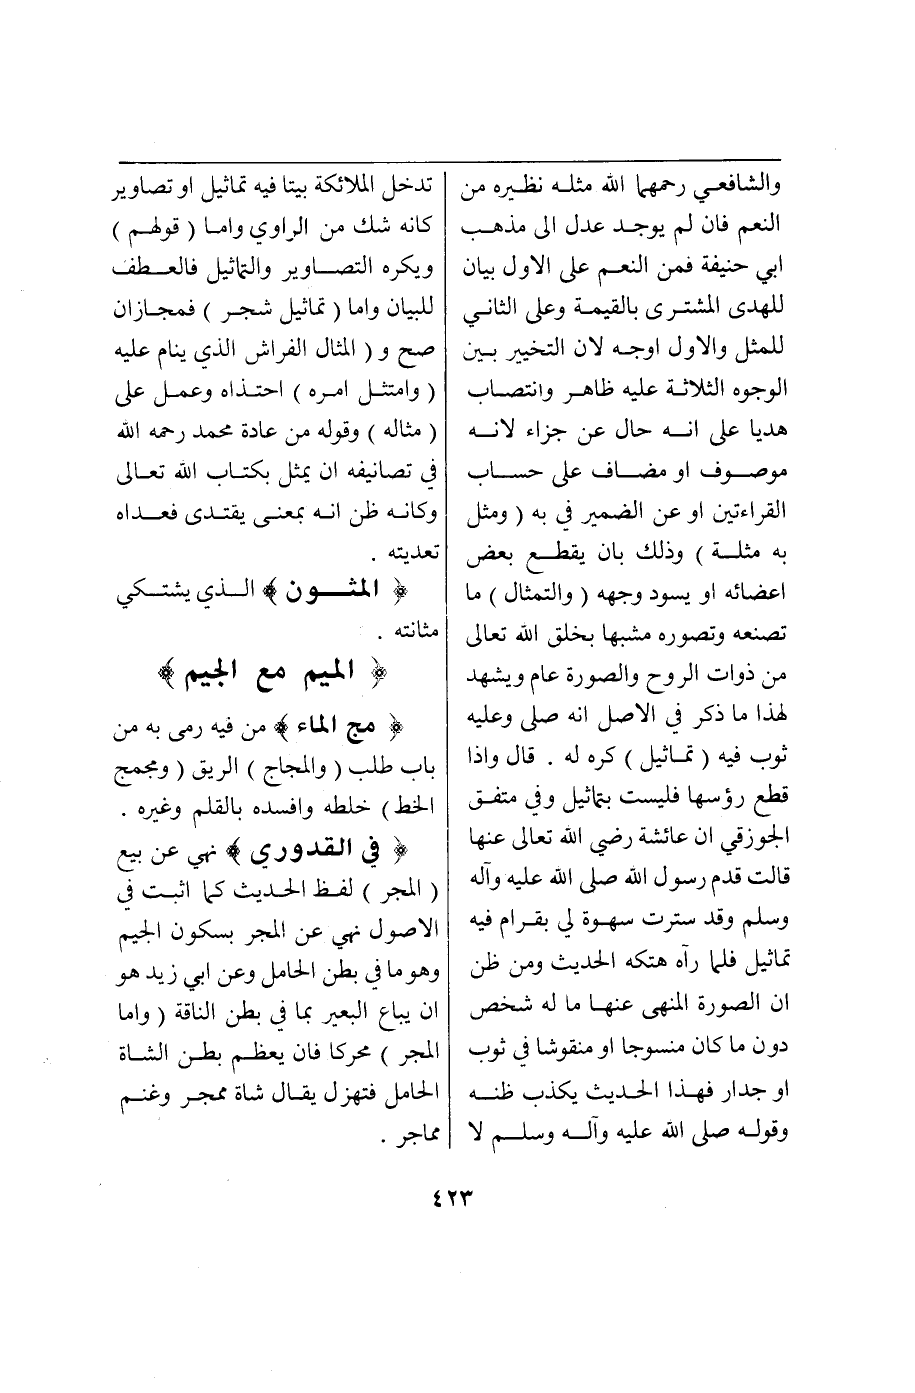 والشافعي رحمهما الله مثله نظيره من
النعم فان لم يوجد عدل الى مذهب
ابي حنيفة فمن النعم على الاول بيان
للهدى المشترى بالقيمة وعلى الثاني
للمثل والاول اوجه لان التخيير بين
الوجوه الثلاثة عليه ظاهر وانتصاب
هديا على انه حال عن جزاء لانه
موصوف او مضاف على حساب
القراءتين او عن الضمير في به ( ومثل
به مثلة ) وذلك بان يقطع بعض
اعضائه او يسود وجهه ( والتمثال ) ما
تصنعه وتصوره مشبها بخلق الله تعالى
من ذوات الروح والصورة عام ويشهد
لهذا ما ذكر في الاصل انه صلى وعليه
ثوب فيه ( تماثيل ) كره له . قال واذا
قطع رؤسها فليست بتماثيل وفي متفق
الجوزقي ان عائشة رضي الله تعالى عنها
قالت قدم رسول الله صلى الله عليه وآله
وسلم وقد سترت سهوة لي بقرام فيه
تماثيل فلما رآه هتكه الحديث ومن ظن
ان الصورة المنهى عنها ما له شخص
دون ما كان منسوجا او منقوشا في ثوب
او جدار فهذا الحديث يكذب ظنه
وقوله صلى الله عليه وآله وسلم لا
تدخل الملائكة بيتا فيه تماثيل او تصاوير
كانه شك من الراوي واما ( قولهم )
ويكره التصاوير والتماثيل فالعطف
للبيان واما ( تماثيل شجر ) فمجازان
صح و ( المثال الفراش الذي ينام عليه
( وامتثل امره ) احتذاه وعمل على
( مثاله ) وقوله من عادة محمد رحمه الله
في تصانيفه ان يمثل بكتاب الله تعالى
وكانه ظن انه بمعنى يقتدى فعداه
تعديته .
﴿ المثون ﴾ الذي يشتكي
مثانته .
﴿ الميم مع الجيم ﴾
﴿ مج الماء ﴾ من فيه رمى به من
باب طلب ( والمجاج ) الريق ( ومجمج
الخط ) خلطه وافسده بالقلم وغيره .
﴿ في القدوري ﴾ نهي عن بيع
( المجر ) لفظ الحديث كما اثبت في
الاصول نهي عن المجر بسكون الجيم
وهو ما في بطن الحامل وعن ابي زيد هو
ان يباع البعير بما في بطن الناقة ( واما
المجر ) محركا فان يعظم بطن الشاة
الحامل فتهزل يقال شاة ممجر وغنم
مماجر .
٤٢٣